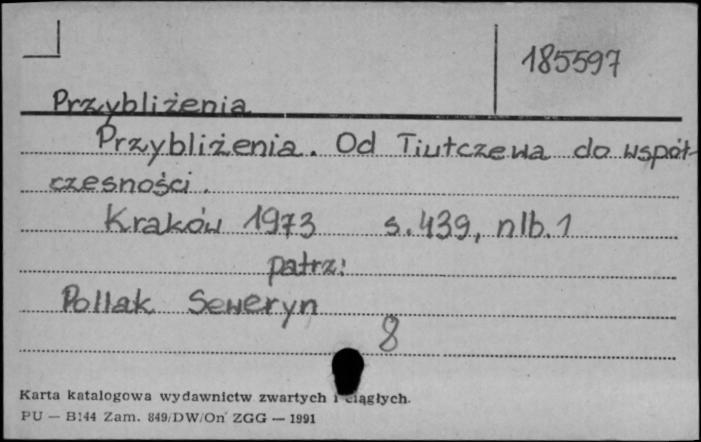 185597
Przybliżenia
Przybliżenia. Od Tiutczewa do współ-
czesności.
Kraków 1973 s. 439, nlb. 1
patrz:
Pollak Seweryn
8
Karta katalogowa wydawnictw zwartych i ciągłych.
PU — B144 Zam. 849/DW/On ZGG — 1991